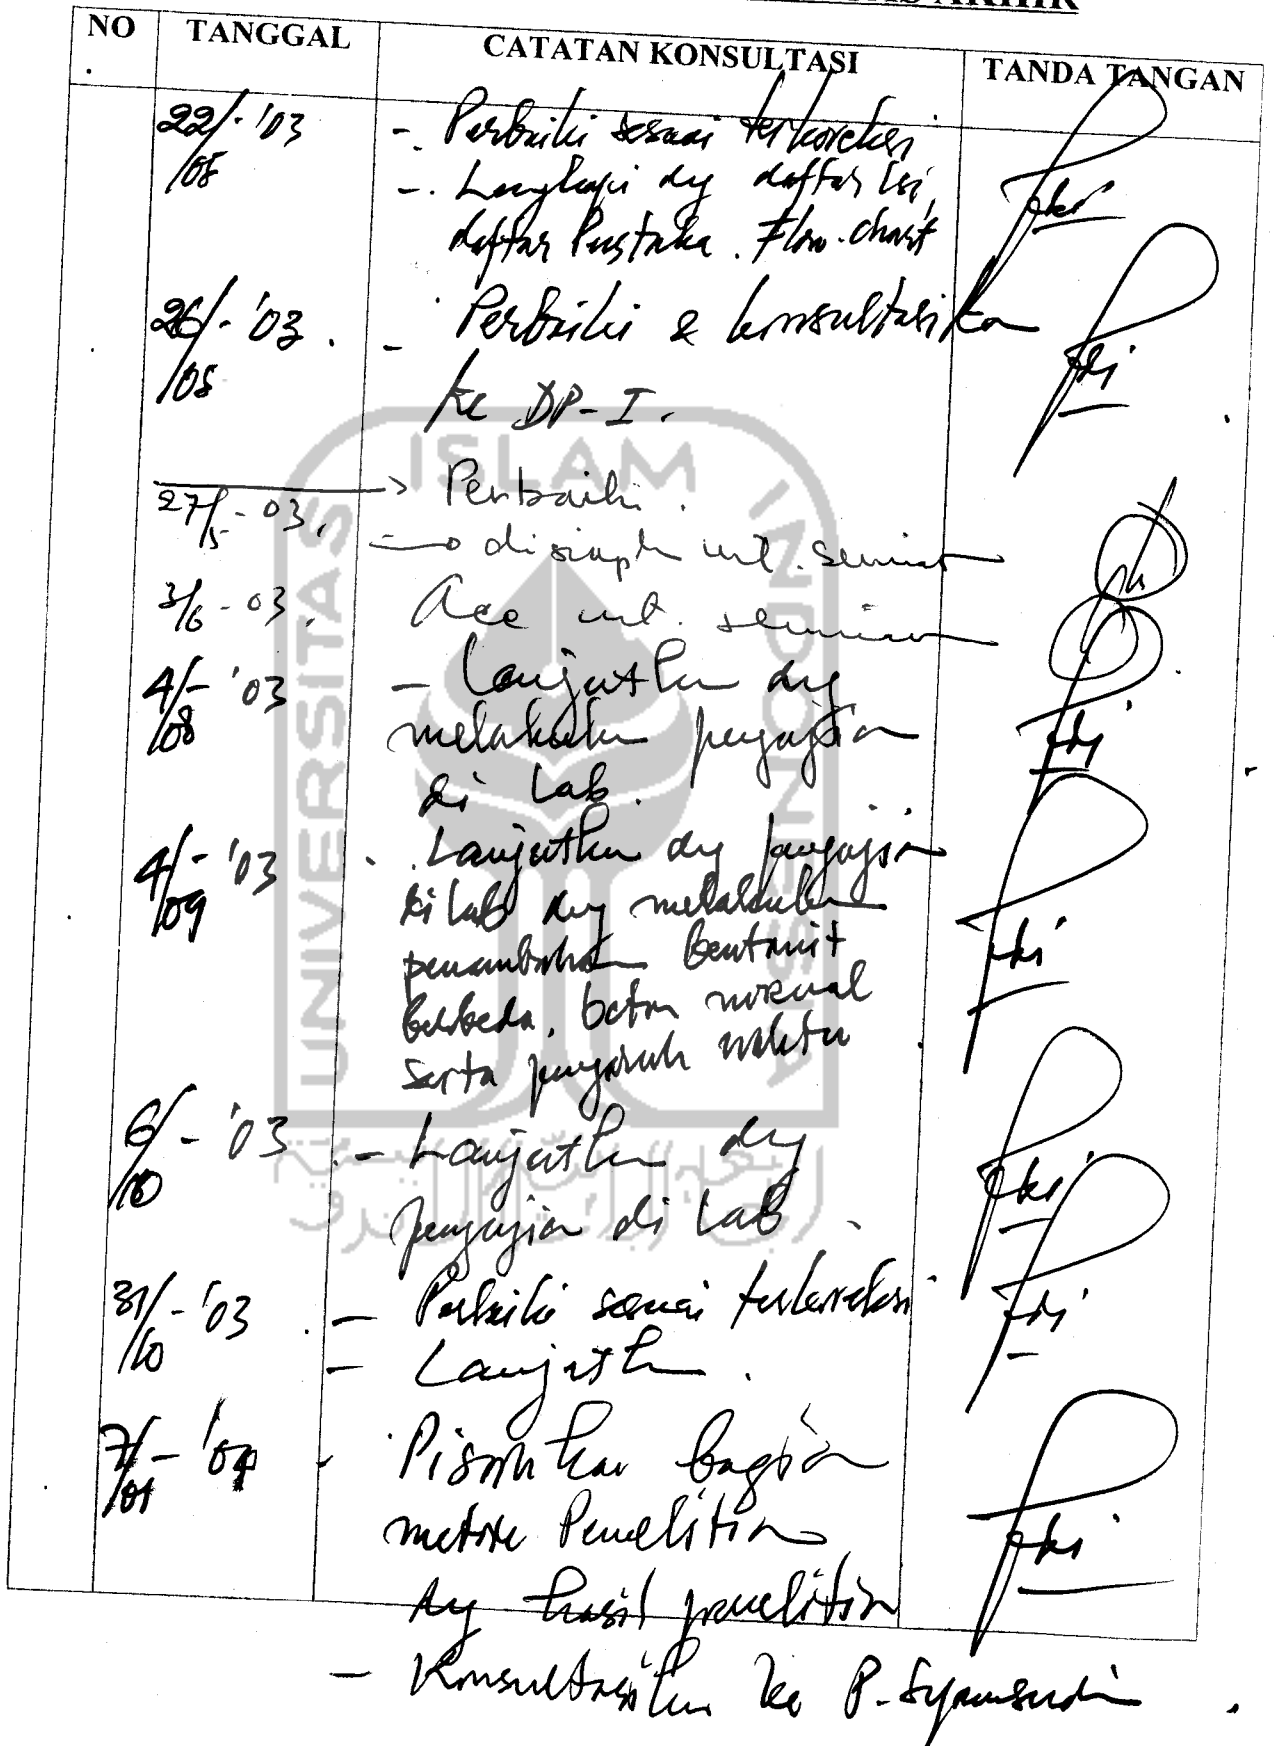 TUGAS AKHIR
NO TANGGAL CATATAN KONSULTASI TANDA TANGAN
22/05-'03 -. Perbaiki sesuai terkoreksi
-. Lengkapi dg daftar isi,
daftar Pustaka. Flow-chart
26/05-'03. - Perbaiki & konsultasikan
ke DP-I.
27/5-03. -> Perbaiki.
disiapkn unt. seminar
3/6-03. Acc unt. seminar
4/08-'03 - Lanjutkan dg
melakukan pengujian
di Lab.
4/09-'03 . Lanjutkan dg pengujian
di Lab dg melakukan
penambahan Bentonit
berbeda, beton normal
serta pengaruh waktu
6/10-'03 - Lanjutkan dg
pengujian di Lab.
31/10-'03 - Perbaiki sesuai terkoreksi
- Lanjutkan.
7/01-'04 - Pisahkan bagian
metode Penelitian
dg hasil penelitian
- Konsultasikan ke P. Syamsudin.
UNIVERSITAS ISLAM INDONESIA